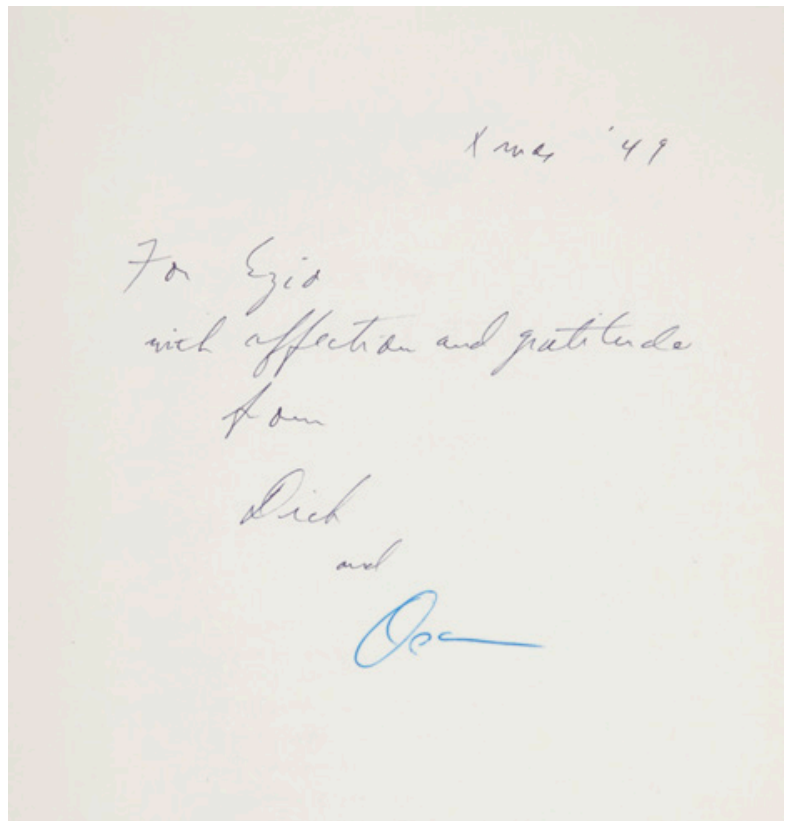 Xmas '49
For Ezio
with affection and gratitude
from
Dick
and
Oscar